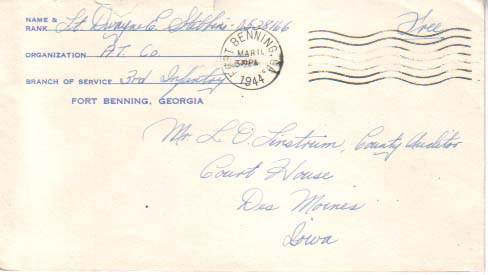 NAME & RANK Lt Dwayne E. Stebbins Free
ORGANIZATION A.T. Co.
BRANCH OF SERVICE 3rd Infantry
FORT BENNING, GEORGIA
FORT BENNING, GA.
MAR 11
1944
Mr. L. O. Linstrum, County Auditor
Court House
Des Moines
Iowa